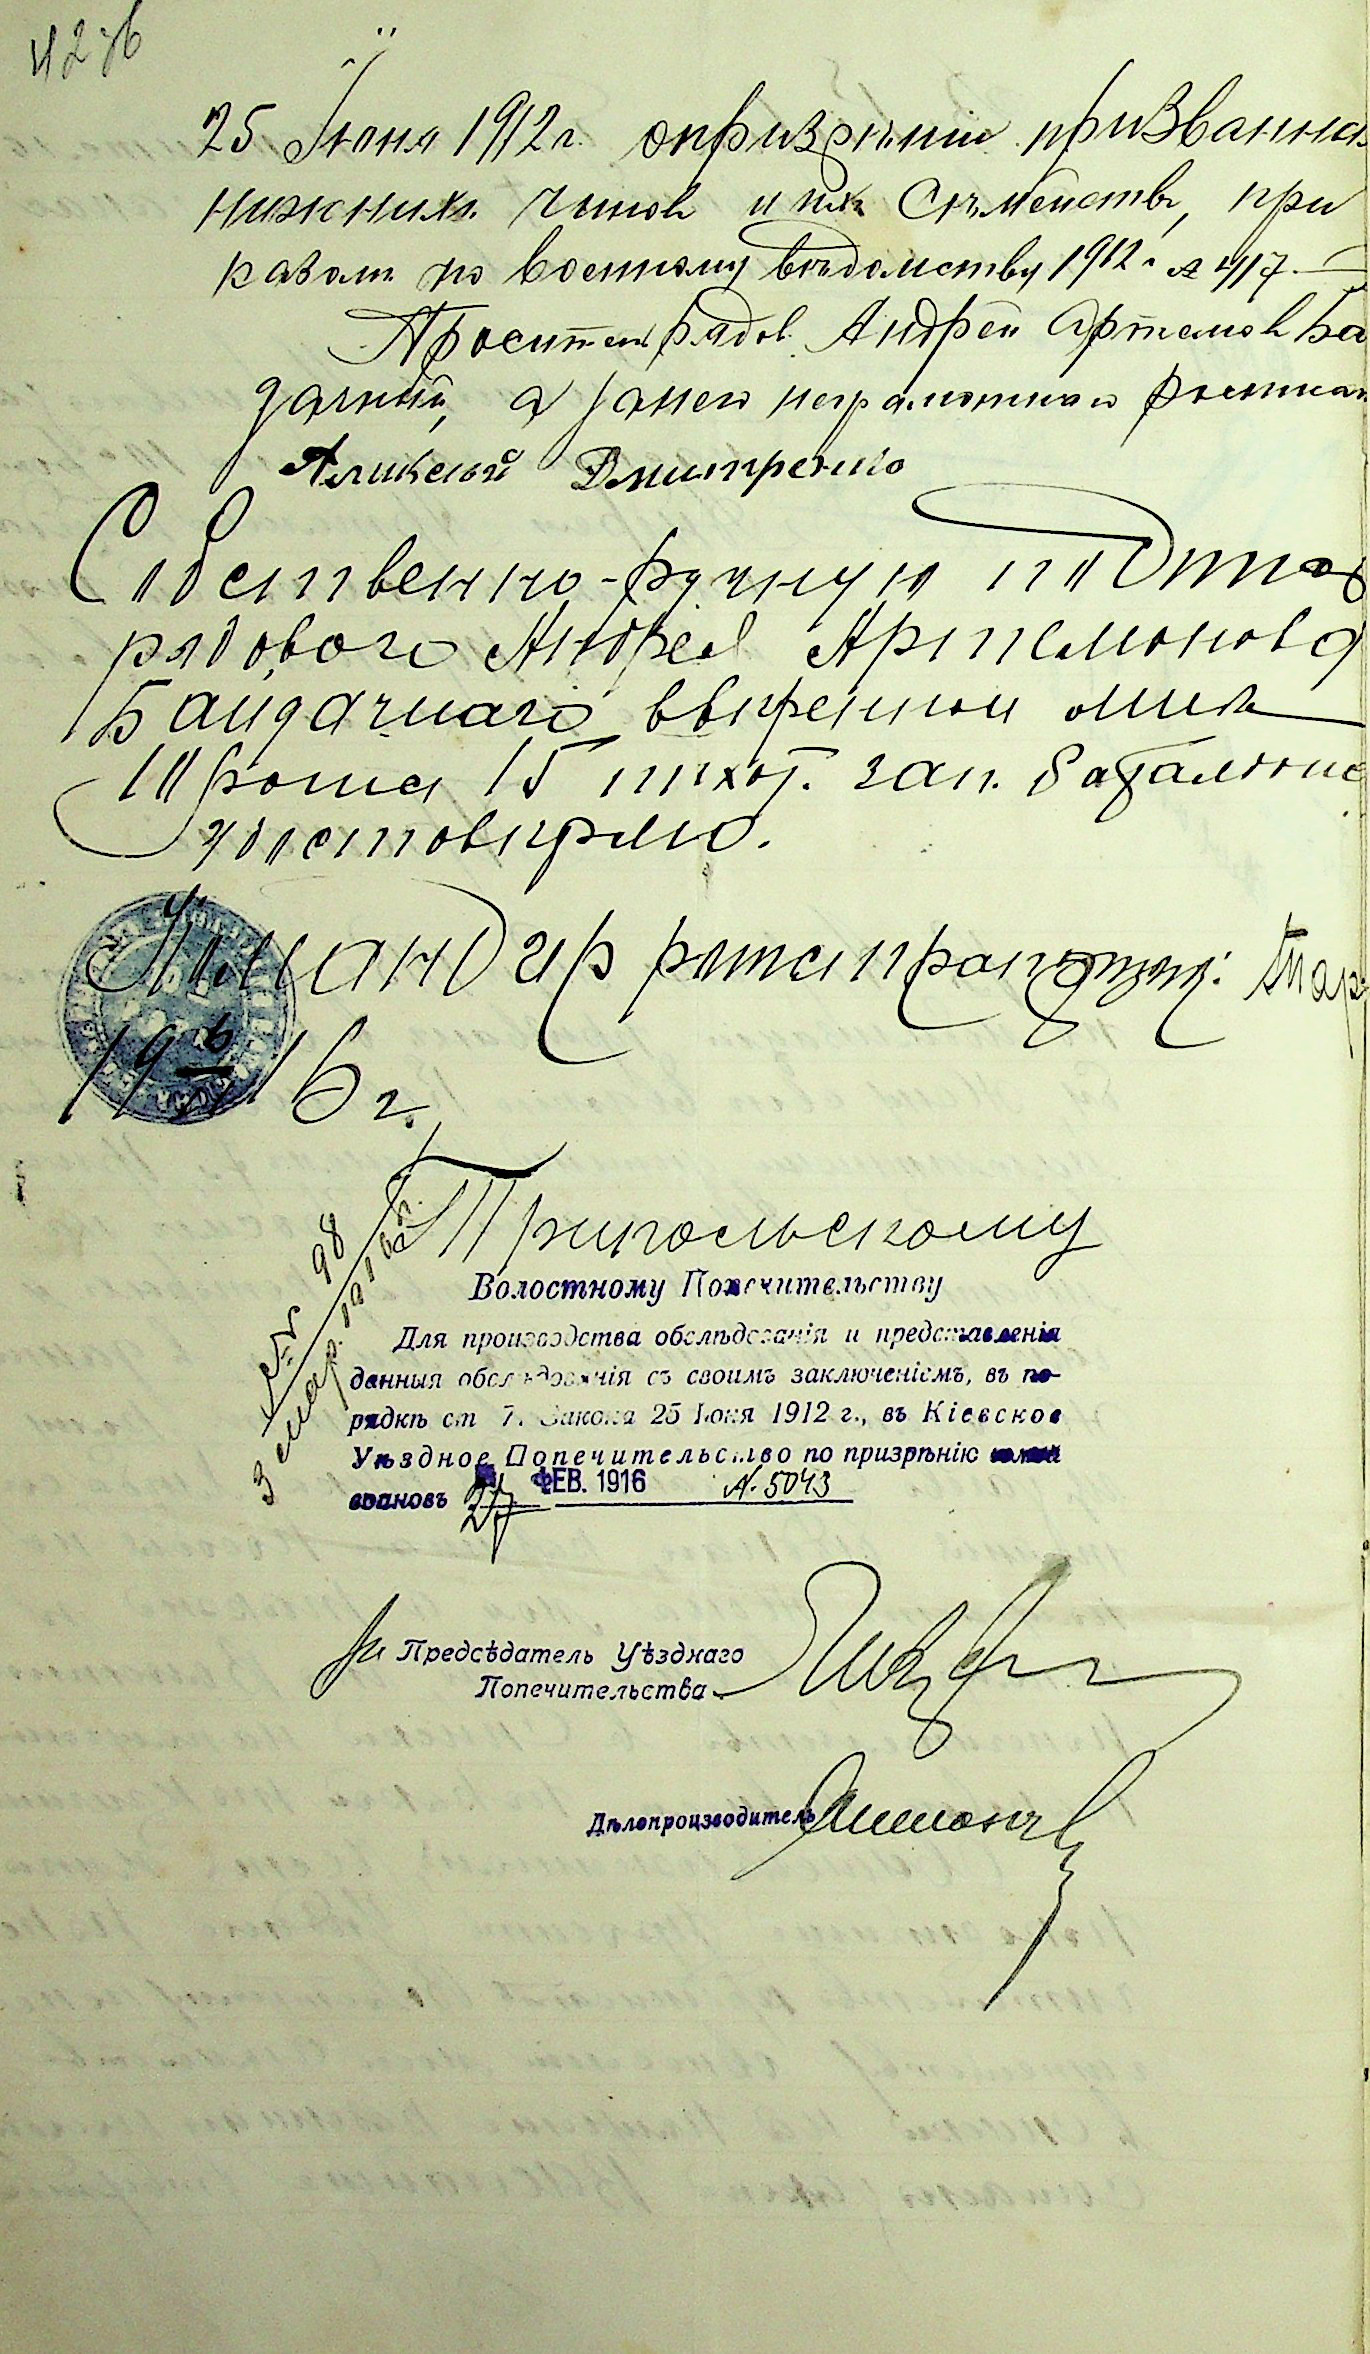 25 Іюня 1912 г. о призрѣніи призванны
нижнихъ чиновъ и ихъ Семействъ, при
казом по военному вѣдомству 1912 г. № 417.
Проситель рядов. Андрей Артемов Бай
дачный, а за него неграмотнаго росписал
Аликсѣй Дмитренко
Собственно-ручную подпис
рядового Андрея Артемонова
Байдачнаго ввѣренной мнѣ
роты 15 пѣхот. зап. баталіона
удостовѣряю.
Командир роты прапорщик:
19 16 г.
№ 98
3 мар. 1916 г.
Трипольскому
Волостному Попечительству
Для производства обслѣдованія и представленія
данныя обслѣдованія съ своимъ заключеніемъ, въ по-
рядкѣ ст 7. Закона 25 Іюня 1912 г., въ Кіевское
Уѣздное Попечительство по призрѣнію
27 ФЕВ. 1916 № 5043
За Предсѣдатель Уѣзднаго
Попечительства
Дѣлопроизводитель